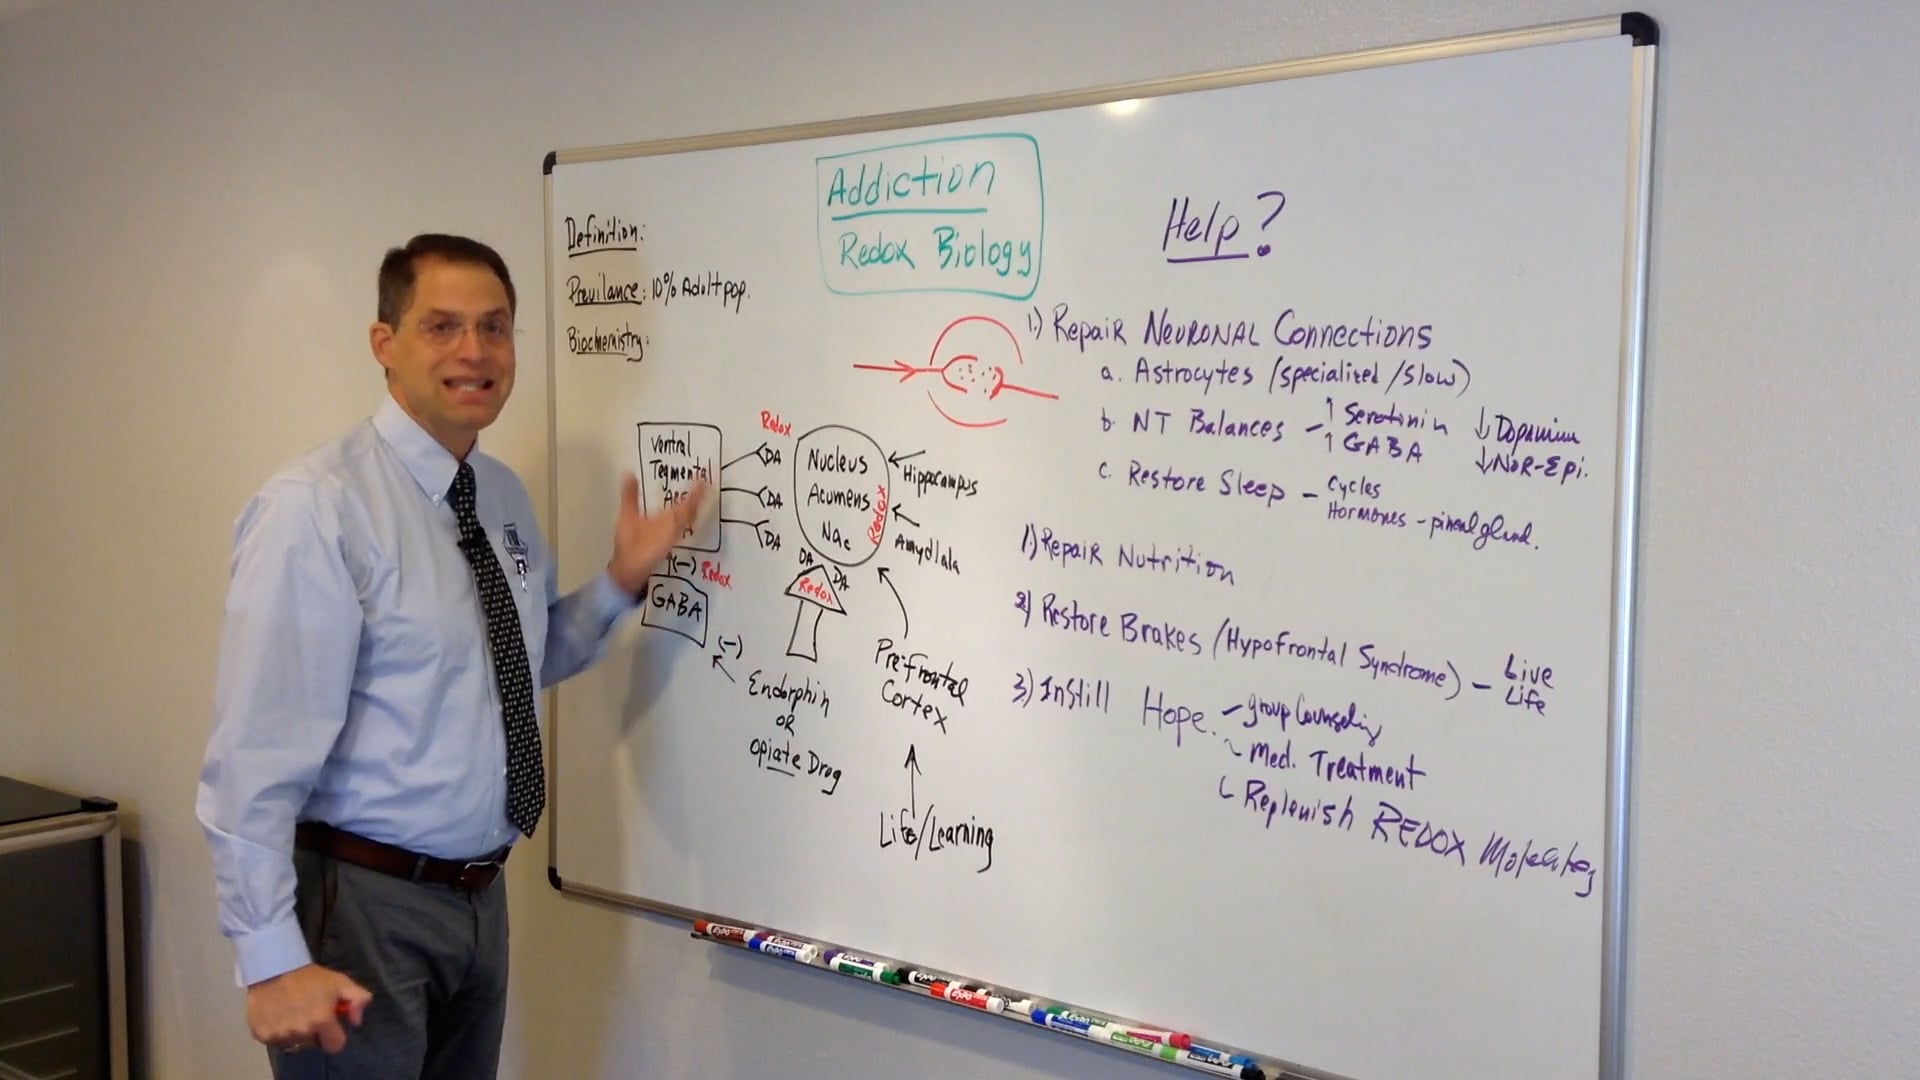 Addiction
Redox Biology
Definition:
Previlance: 10% Adult pop.
Biochemistry:
Ventral
Tegmental
Redox
DA
DA
DA
Nucleus
Acumens
Nac
Redox
Hippocampus
Amydlala
(-) Redox
GABA
(-)
DA
DA
Redox
Endorphin
OR
Opiate Drug
Prefrontal
Cortex
Life/Learning
Help?
1.) Repair Neuronal Connections
a. Astrocytes (specialized/slow)
b. NT Balances - ↑ Serotinin ↓ Dopamine
↑ GABA ↓ Nor-Epi.
c. Restore Sleep - Cycles
Hormones - pineal gland.
1.) Repair Nutrition
2) Restore Brakes (Hypofrontal Syndrome) - Live
Life
3) Instill Hope. - group Counseling
- Med. Treatment
- Replenish REDOX Molecules
EXPO